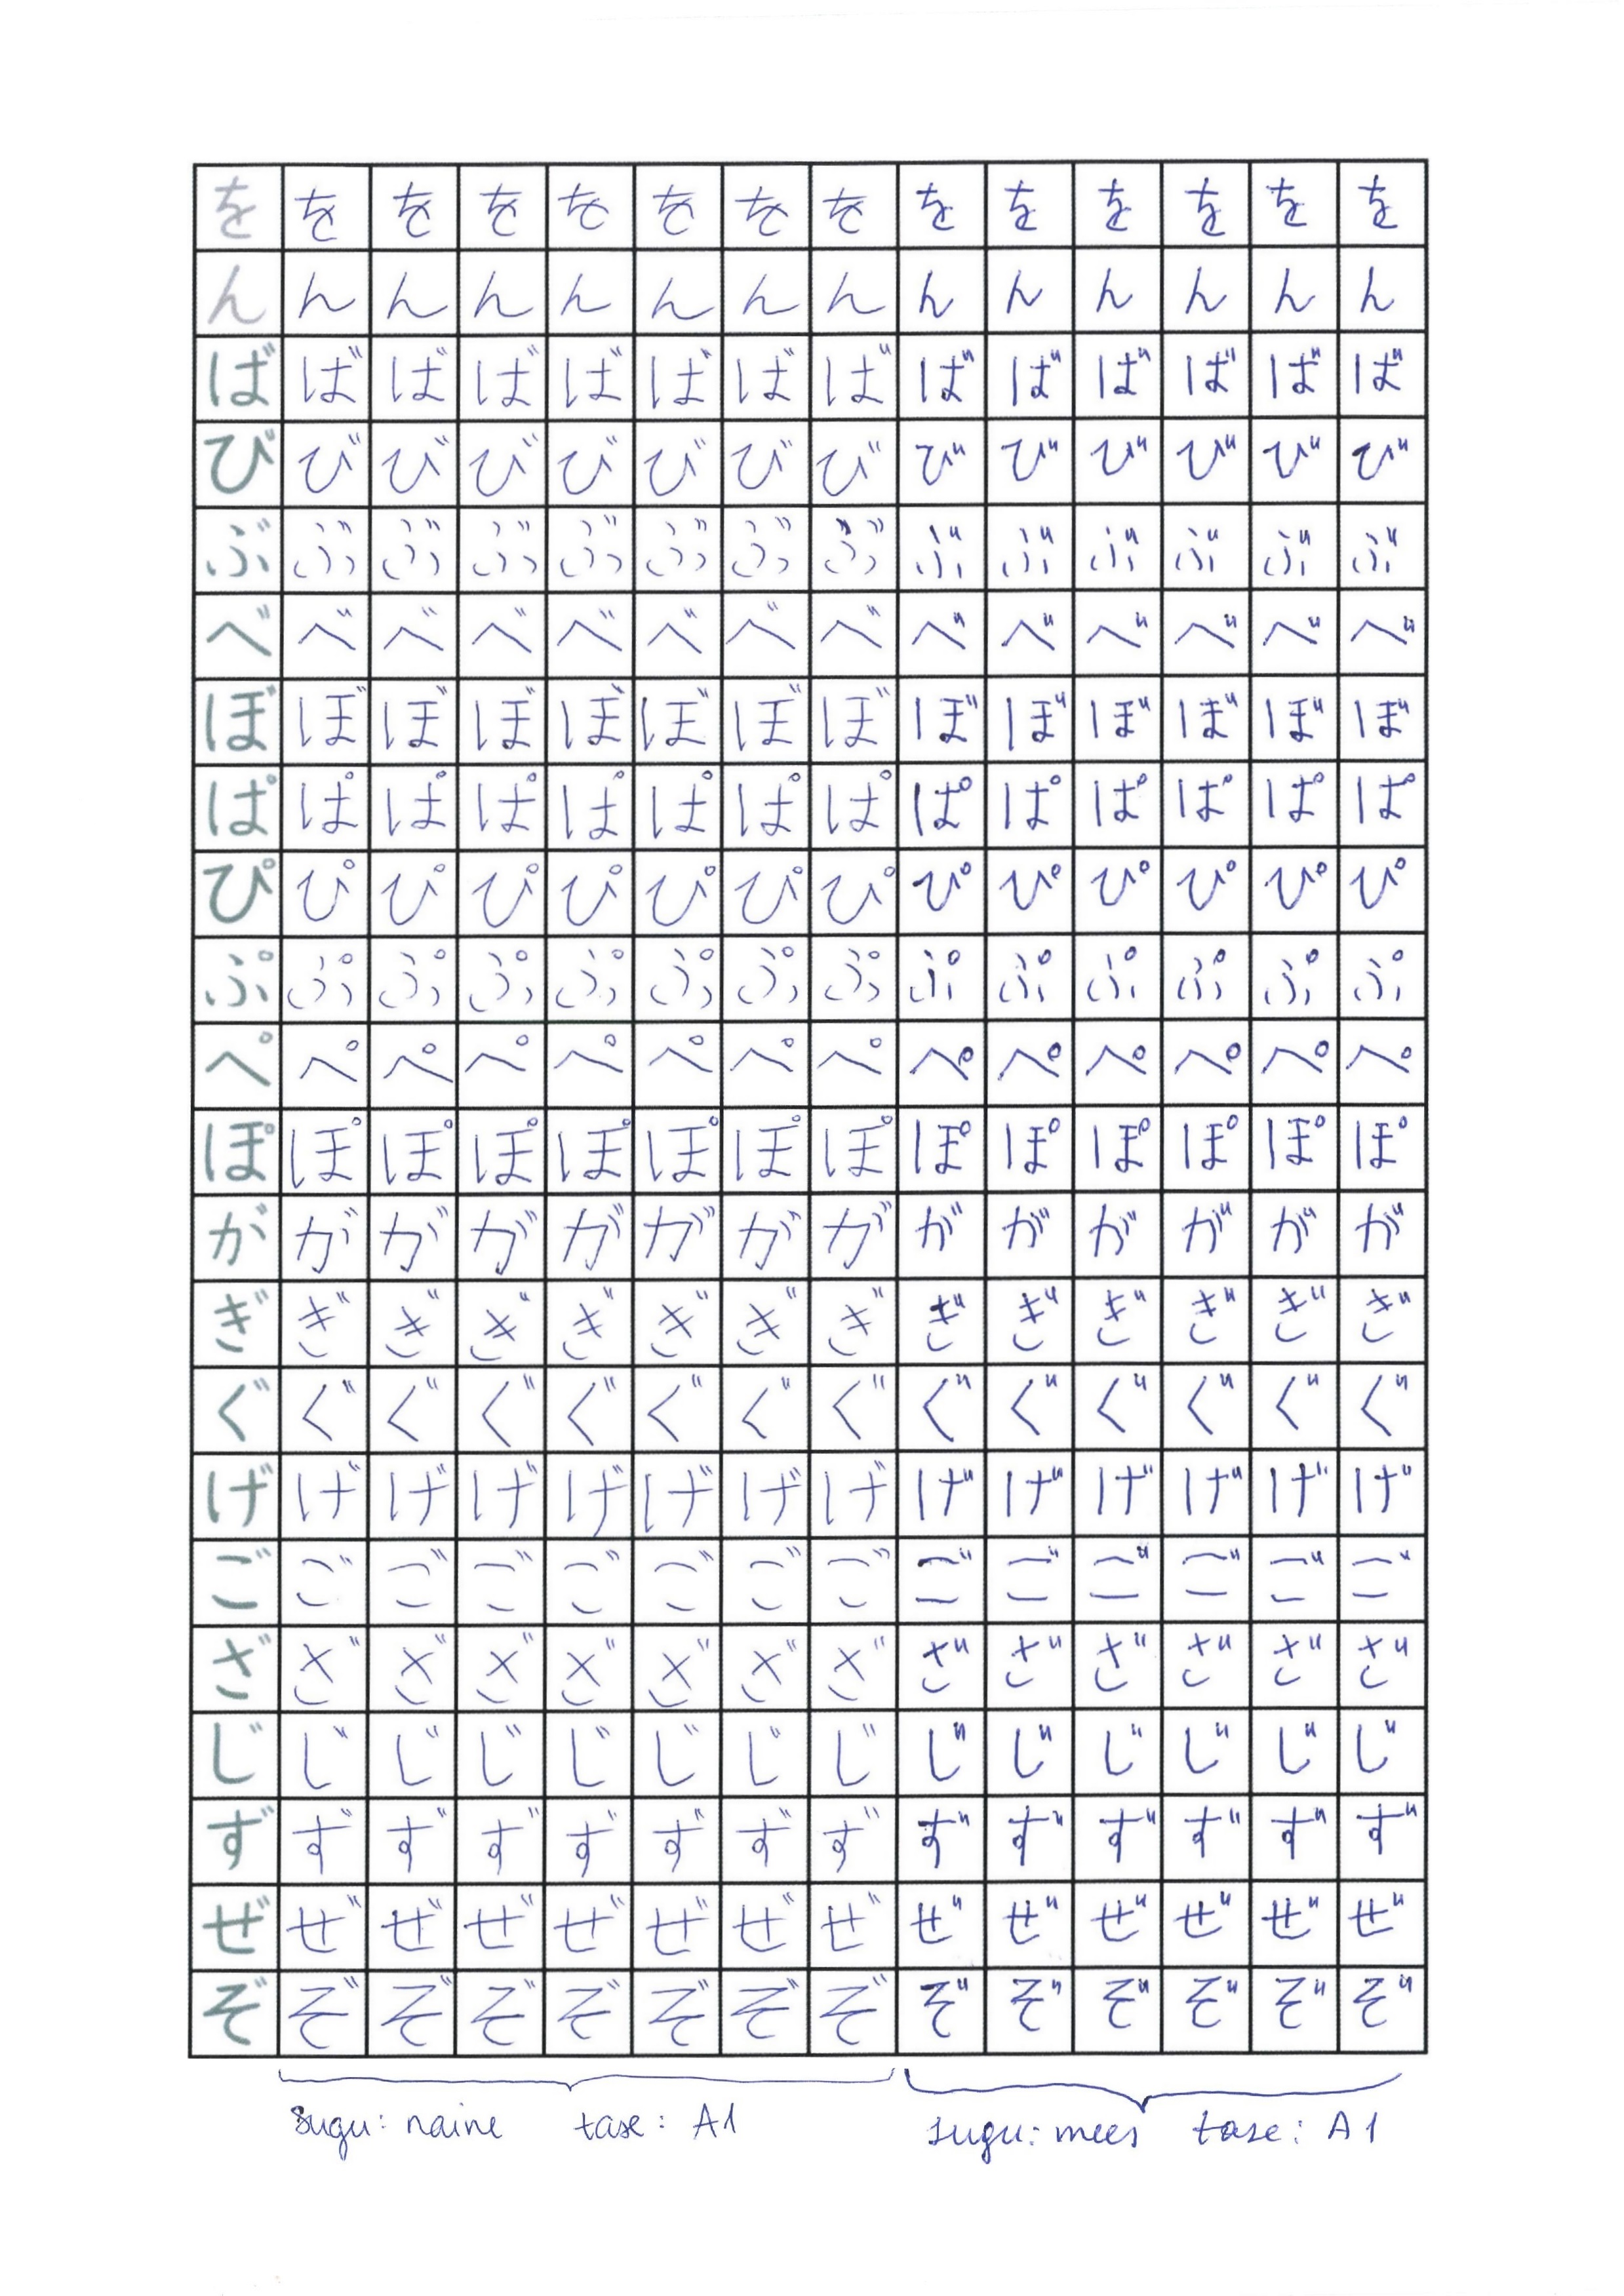 を を を を を を を を を を を を を を
ん ん ん ん ん ん ん ん ん ん ん ん ん ん
ば ば ば ば ば ば ば ば ば ば ば ば ば ば
び び び び び び び び び び び び び び
ぶ ぶ ぶ ぶ ぶ ぶ ぶ ぶ ぶ ぶ ぶ ぶ ぶ ぶ
べ べ べ べ べ べ べ べ べ べ べ べ べ べ
ぼ ぼ ぼ ぼ ぼ ぼ ぼ ぼ ぼ ぼ ぼ ぼ ぼ ぼ
ぱ ぱ ぱ ぱ ぱ ぱ ぱ ぱ ぱ ぱ ぱ ぱ ぱ ぱ
ぴ ぴ ぴ ぴ ぴ ぴ ぴ ぴ ぴ ぴ ぴ ぴ ぴ ぴ
ぷ ぷ ぷ ぷ ぷ ぷ ぷ ぷ ぷ ぷ ぷ ぷ ぷ ぷ
ぺ ぺ ぺ ぺ ぺ ぺ ぺ ぺ ぺ ぺ ぺ ぺ ぺ ぺ
ぽ ぽ ぽ ぽ ぽ ぽ ぽ ぽ ぽ ぽ ぽ ぽ ぽ ぽ
が が が が が が が が が が が が が が
ぎ ぎ ぎ ぎ ぎ ぎ ぎ ぎ ぎ ぎ ぎ ぎ ぎ ぎ
ぐ ぐ ぐ ぐ ぐ ぐ ぐ ぐ ぐ ぐ ぐ ぐ ぐ ぐ
げ げ げ げ げ げ げ げ げ げ げ げ げ げ
ご ご ご ご ご ご ご ご ご ご ご ご ご ご
ざ ざ ざ ざ ざ ざ ざ ざ ざ ざ ざ ざ ざ ざ
じ じ じ じ じ じ じ じ じ じ じ じ じ じ
ず ず ず ず ず ず ず ず ず ず ず ず ず ず
ぜ ぜ ぜ ぜ ぜ ぜ ぜ ぜ ぜ ぜ ぜ ぜ ぜ ぜ
ぞ ぞ ぞ ぞ ぞ ぞ ぞ ぞ ぞ ぞ ぞ ぞ ぞ ぞ
sugu: naine tase: A1 sugu: mees tase: A1